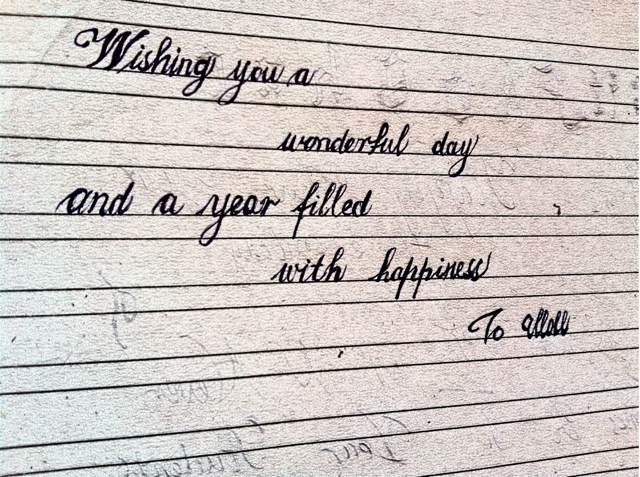 Wishing you a
wonderful day
and a year filled
with happiness
To